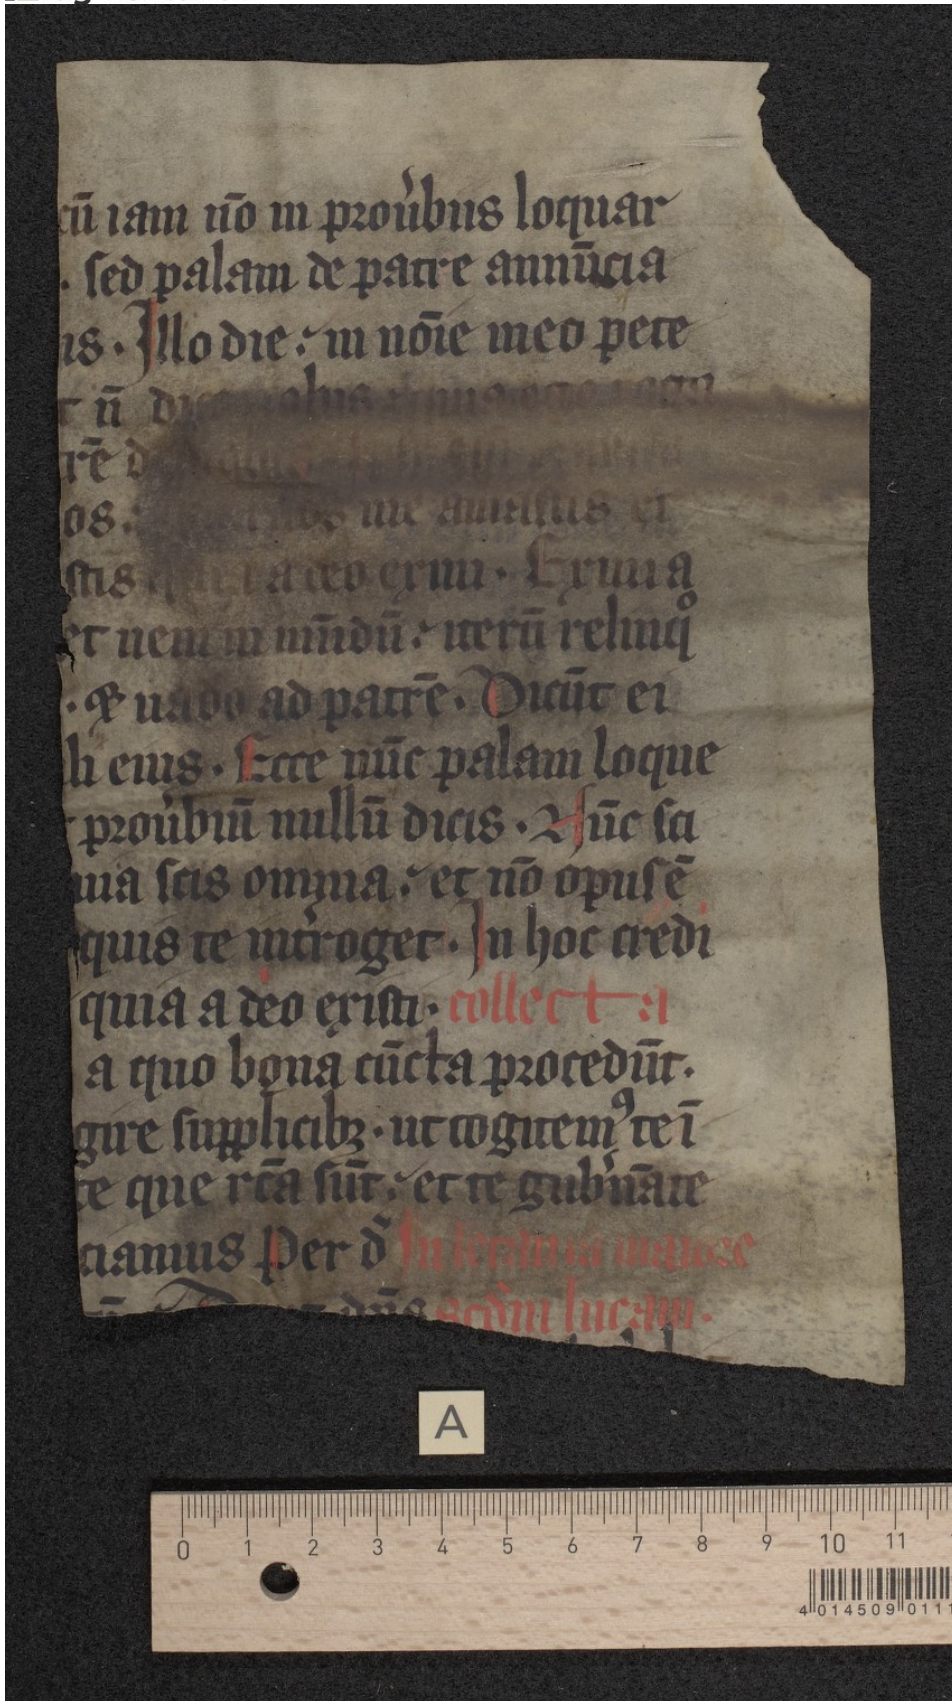 cū iam nō in prouͥbiis loquar
. sed palam de patre annūcia
is. Illo die: in noīe meo pete
t nō̄ dico vobis
rē
os. me amastis et
stis quia a deo exiui. Exiui a
et ueni in mūdū: iterū relinqͦ
. & uado ad patrē. Dicūt ei
li eius. Ecce nūc palam loque
prouͥbiū nullū dicis. Nūc sci
uia scis omnia: et nō opus ē
quis te intͥroget. In hoc credi
quia a deo existi. collecta
a quo bona cūcta procedūt.
gire supplicibꝫ. ut cogitemꝰ te ī
te que rcā sūt: et te gubͥnāte
ciamus Per dͫ In letania maiore
dn̄s scdm̄ lucam.
4 014509 0111
0 1 2 3 4 5 6 7 8 9 10 11
A